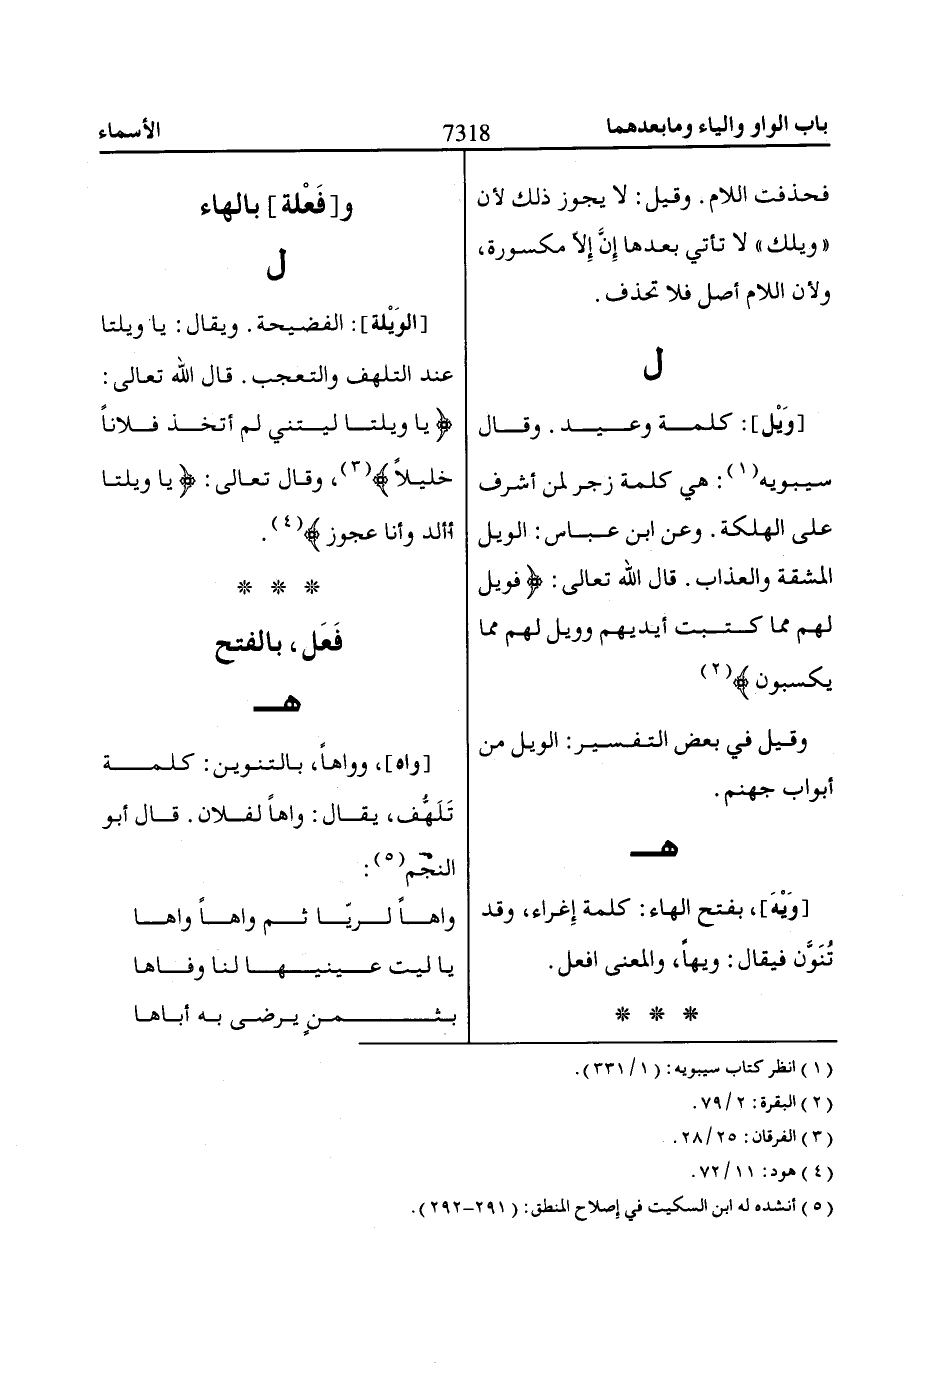 باب الواو والياء ومابعدهما
7318
الأسماء
فحذفت اللام. وقيل: لا يجوز ذلك لأن
«ويلك» لا تأتي بعدها إنَّ إلاّ مكسورة،
ولأن اللام أصل فلا تحذف.
ل
[وَيْل]: كلمة وعيد. وقال
سيبويه(١): هي كلمة زجر لمن أشرف
على الهلكة. وعن ابن عباس: الويل
المشقة والعذاب. قال الله تعالى: ﴿فويل
لهم مما كتبت أيديهم وويل لهم مما
يكسبون﴾(٢)
وقيل في بعض التفسير: الويل من
أبواب جهنم.
هـ
[وَيْهَ]، بفتح الهاء: كلمة إغراء، وقد
تُنَوَّن فيقال: ويهاً، والمعنى افعل.
* * *
و[فَعْلة] بالهاء
ل
[الوَيْلة]: الفضيحة. ويقال: يا ويلتا
عند التلهف والتعجب. قال الله تعالى:
﴿يا ويلتا ليتني لم أتخذ فلاناً
خليلاً﴾(٣)، وقال تعالى: ﴿يا ويلتا
أألد وأنا عجوز﴾(٤).
* * *
فَعَل، بالفتح
هـ
[واه]، وواهاً، بالتنوين: كلمة
تَلَهُّف، يقال: واهاً لفلان. قال أبو
النجم(٥):
واهاً لريّا ثم واهاً واها
يا ليت عينيها لنا وفاها
بثمنٍ يرضى به أباها
(١) انظر كتاب سيبويه: (٣٣١/١).
(٢) البقرة: ٧٩/٢.
(٣) الفرقان: ٢٨/٢٥.
(٤) هود: ٧٢/١١.
(٥) أنشده له ابن السكيت في إصلاح المنطق: (٢٩١-٢٩٢).